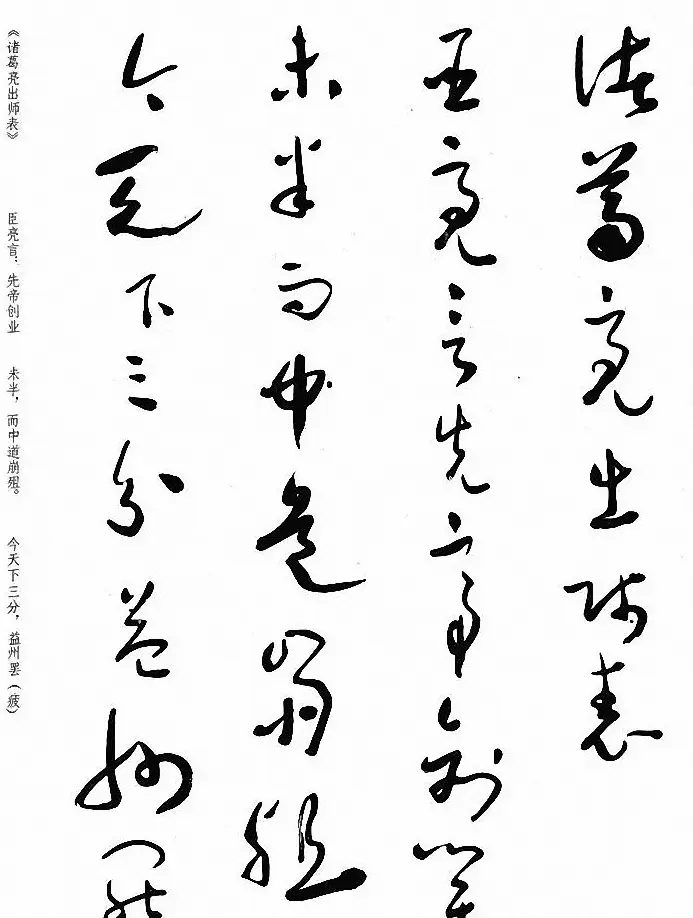 诸葛亮出师表
臣亮言先帝创业
未半而中道崩殂
今天下三分益州罢
《诸葛亮出师表》 臣亮言：先帝创业 未半，而中道崩殂。 今天下三分，益州罢（疲）